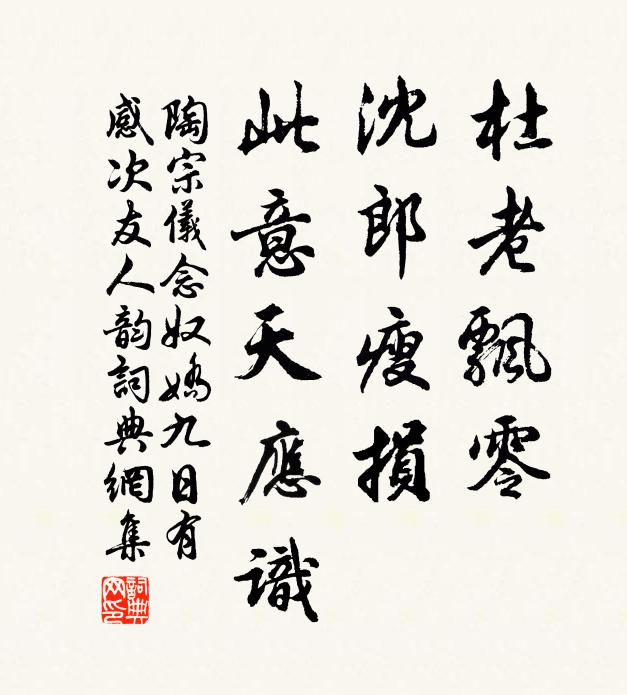 杜老飄零
沈郎瘦損
此意天應識
陶宗儀念奴嬌九日有
感次友人韵詞典網集
詞典網印